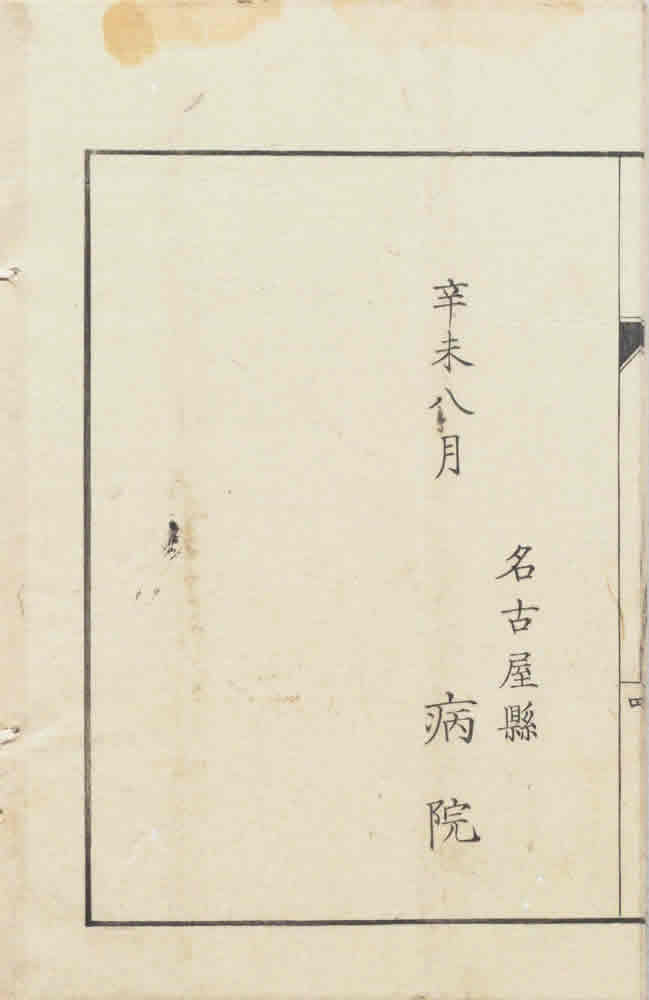 名古屋縣
辛未八月
病院